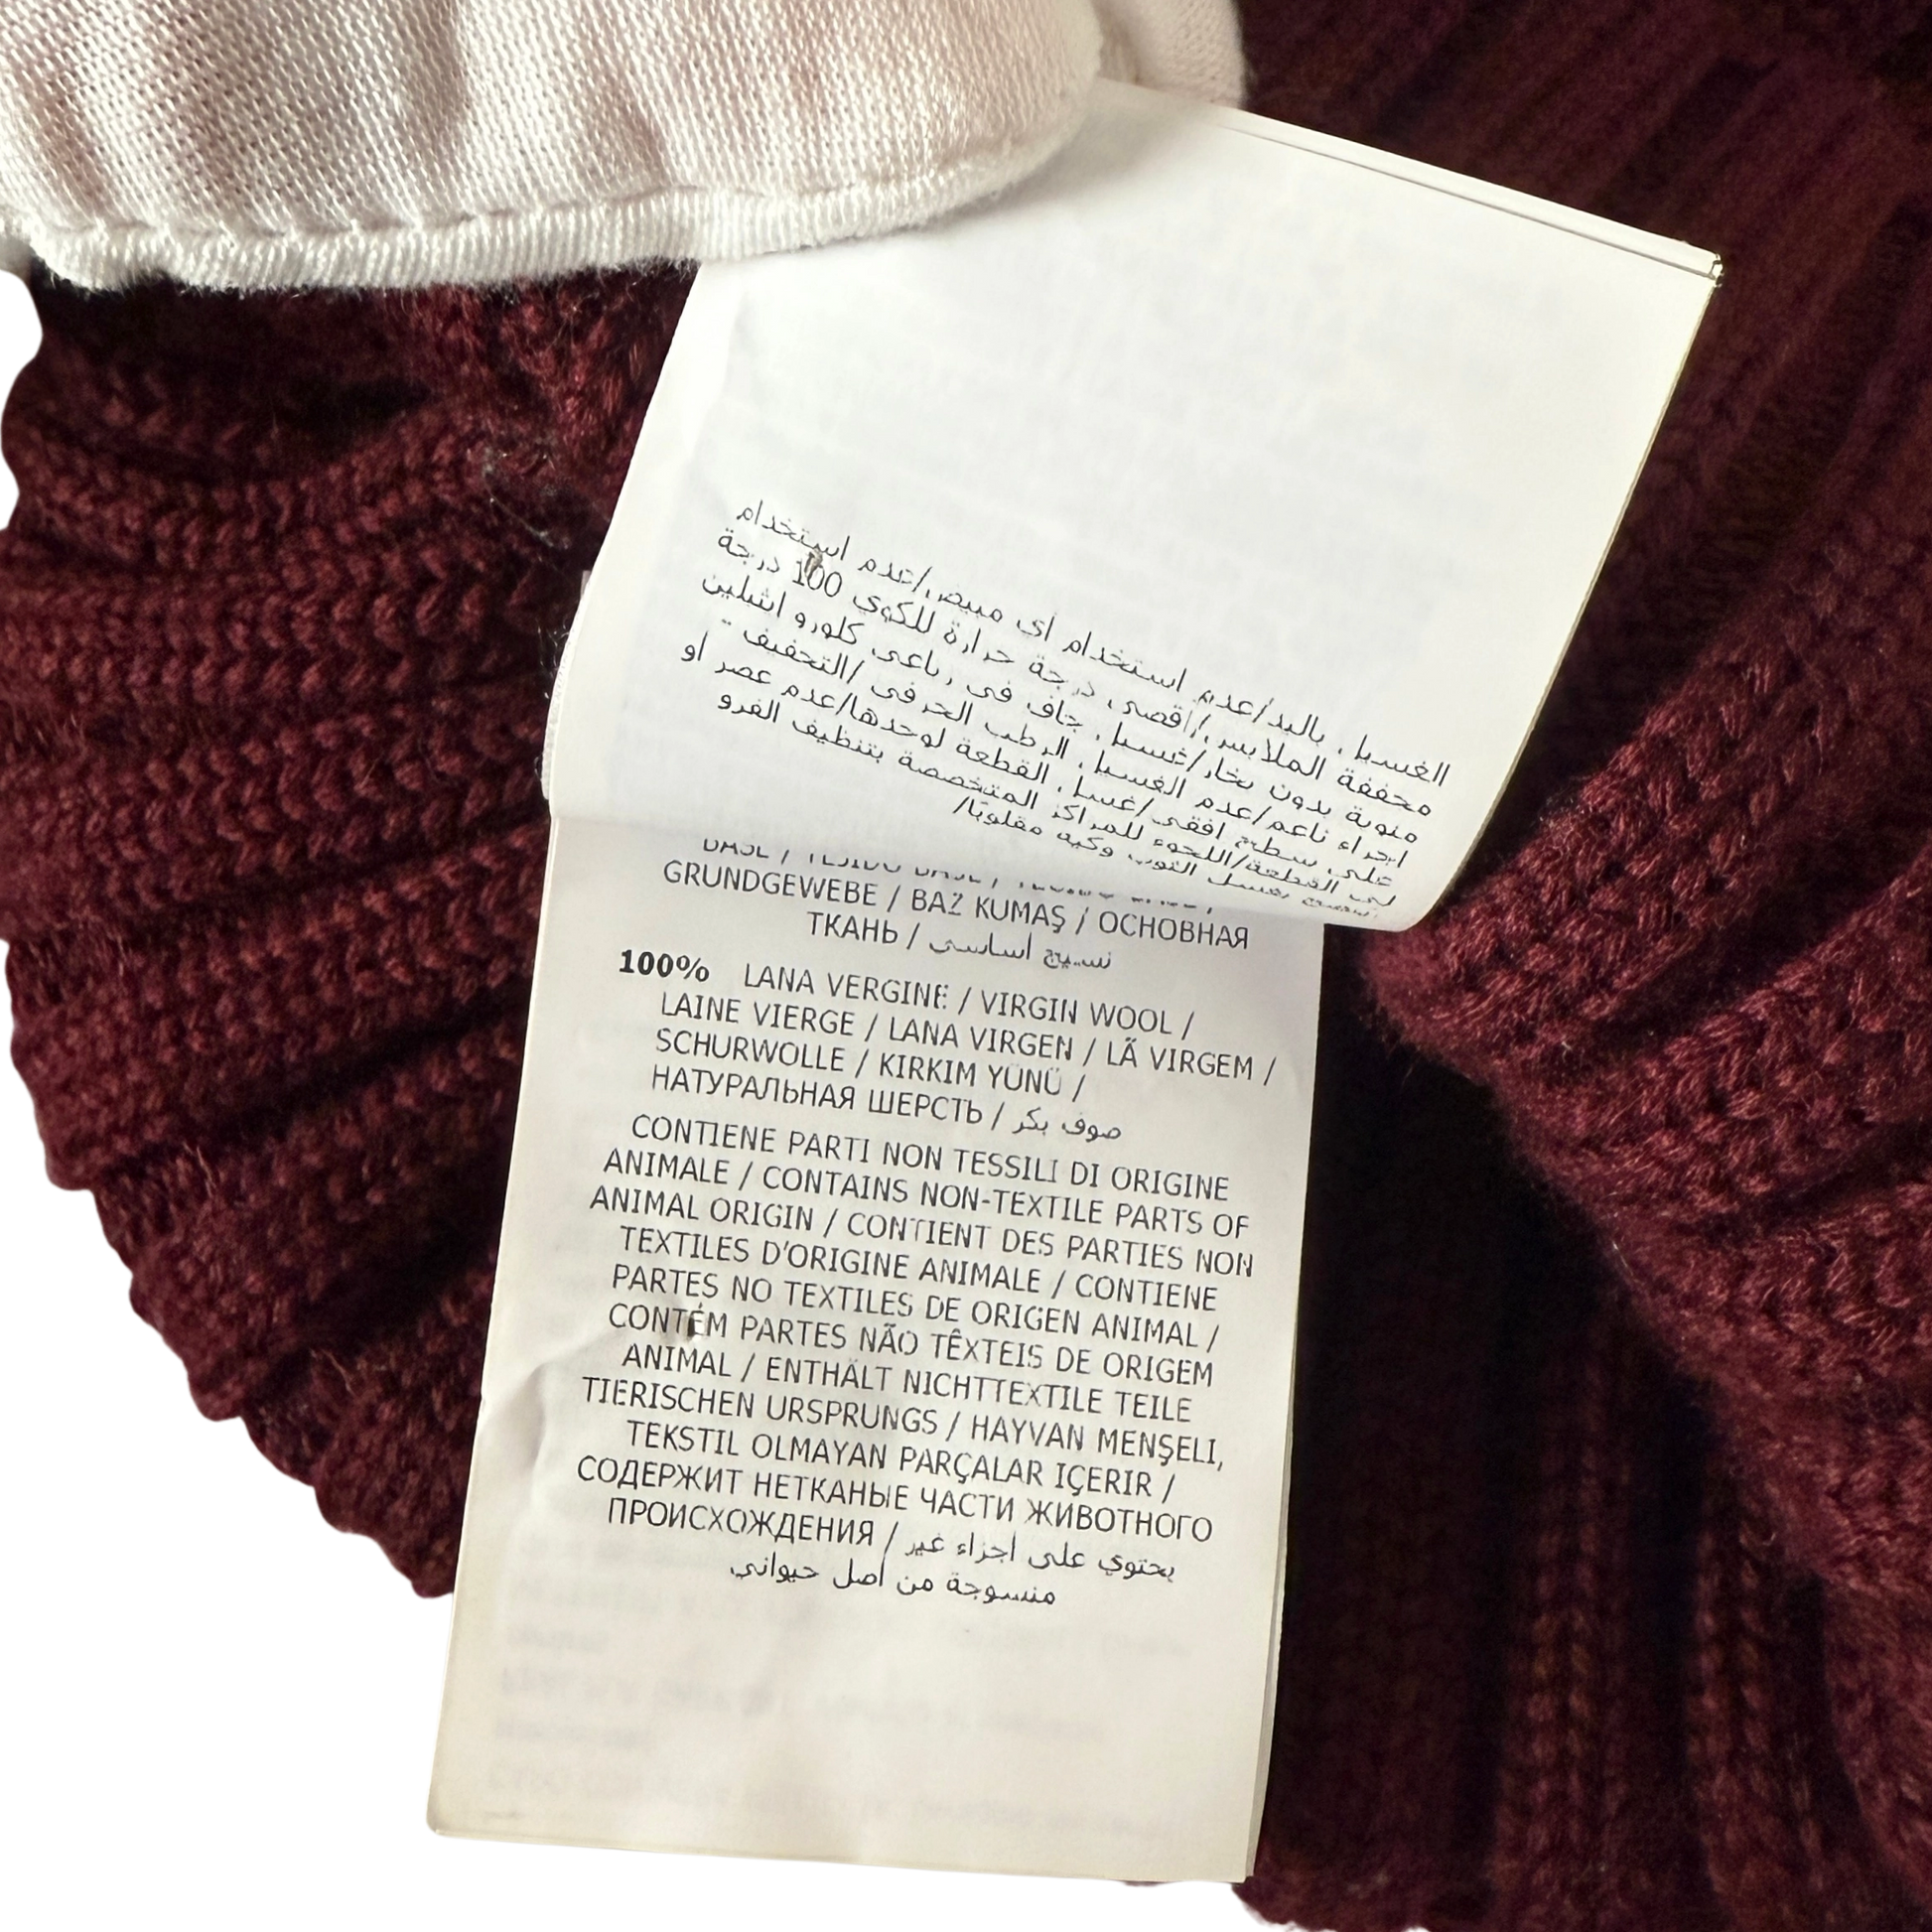 الغسيل باليد/عدم استخدام أي مبيض/عدم استخدام
مجففة الملابس/أقصى درجة حرارة للكوي 100 درجة
مئوية بدون بخار/غسيل جاف في رباعي كلورو اثيلين
اجراء ناعم/عدم الغسيل الرطب الحرفي/التجفيف -
على سطح افقي/غسل القطعة لوحدها/عدم عصر او
لي القطعة/اللجوء للمراكز المتخصصة بتنظيف الفرو
بغسل الثوب وكيه مقلوبًا/
GRUNDGEWEBE / BAZ KUMAŞ / ОСНОВНАЯ
ТКАНЬ / نسيج اساسي
100% LANA VERGINE / VIRGIN WOOL /
LAINE VIERGE / LANA VIRGEN / LÃ VIRGEM /
SCHURWOLLE / KIRKIM YÜNÜ /
НАТУРАЛЬНАЯ ШЕРСТЬ / صوف بكر
CONTIENE PARTI NON TESSILI DI ORIGINE
ANIMALE / CONTAINS NON-TEXTILE PARTS OF
ANIMAL ORIGIN / CONTIENT DES PARTIES NON
TEXTILES D'ORIGINE ANIMALE / CONTIENE
PARTES NO TEXTILES DE ORIGEN ANIMAL /
CONTÉM PARTES NÃO TÊXTEIS DE ORIGEM
ANIMAL / ENTHÄLT NICHTTEXTILE TEILE
TIERISCHEN URSPRUNGS / HAYVAN MENŞELI,
TEKSTIL OLMAYAN PARÇALAR IÇERIR /
СОДЕРЖИТ НЕТКАНЫЕ ЧАСТИ ЖИВОТНОГО
ПРОИСХОЖДЕНИЯ / يحتوي على اجزاء غير
منسوجة من اصل حيواني